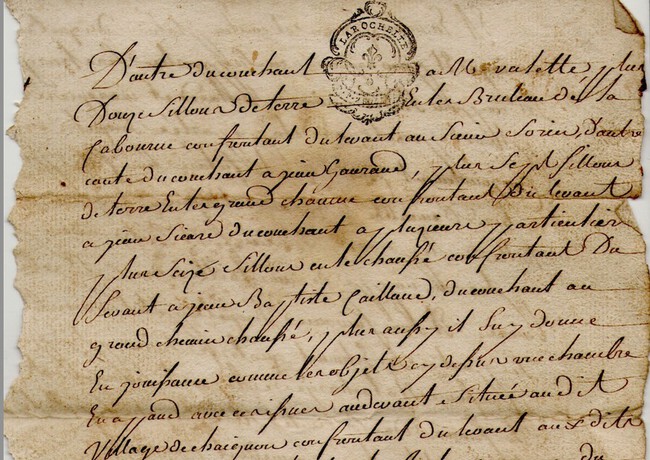 LAROCHELLE
D'autre du couchant a M. valette, plus
Douze Sillons de terre En les Bruleau de la
Cabourne confrontant du levant au Sieur Sorin, D'autre
couté du couchant a jean Gauraud, plus Sept Sillons
de terre En les grand chaume confrontant du levant
a jean Sicard du couchant a plusieurs particulier
plus Seize Sillons en le chaussé confrontant Du
Levant a jean Baptiste Caillaud, du couchant au
grand chemin chaussé, plus aussy il Suy donne
En jouissance comme les objets cy dessus une chambre
En appand avec ces issues audevant Située au dit
Village de chaignon confrontant du levant aux dits
du